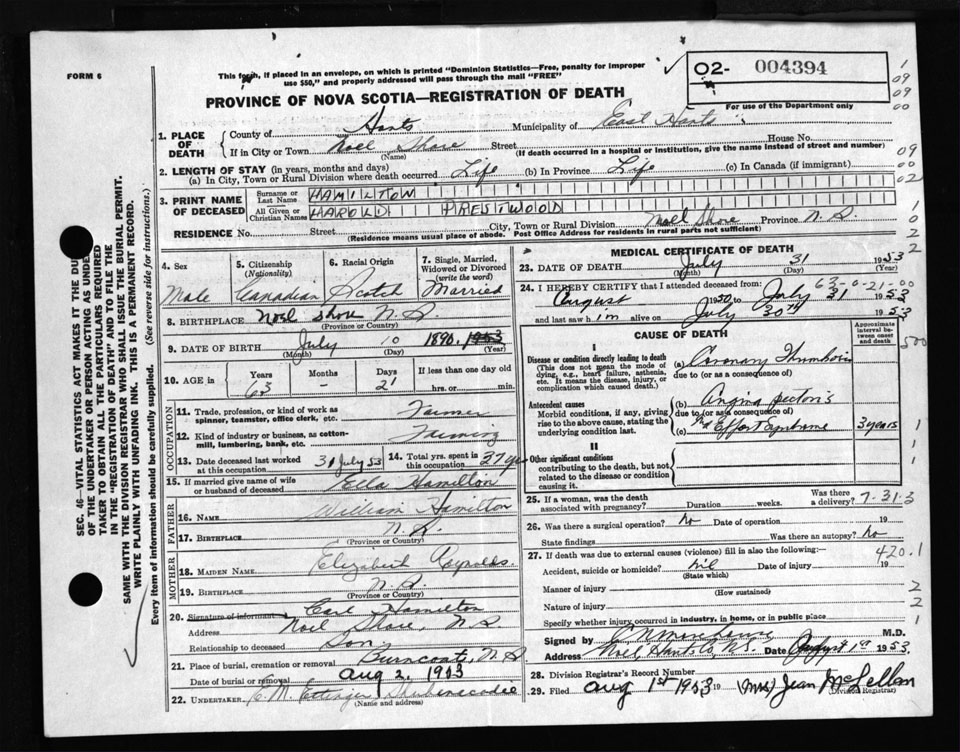 FORM 6
This form, if placed in an envelope, on which is printed "Dominion Statistics—Free, penalty for improper
use $50," and properly addressed will pass through the mail "FREE"
O2- 004394
For use of the Department only
PROVINCE OF NOVA SCOTIA—REGISTRATION OF DEATH
1. PLACE OF DEATH
County of Hants Municipality of East Hants
If in City or Town Noel Shore Street House No.
(Name) (If death occurred in a hospital or institution, give the name instead of street and number)
2. LENGTH OF STAY (in years, months and days)
(a) In City, Town or Rural Division where death occurred Life (b) In Province Life (c) In Canada (if immigrant)
3. PRINT NAME OF DECEASED
Surname or Last Name HAMILTON
All Given or Christian Names HAROLD PRESTWOOD
RESIDENCE No. Street City, Town or Rural Division Noel Shore Province N.S.
(Residence means usual place of abode. Post Office Address for residents in rural parts not sufficient)
4. Sex Male
5. Citizenship (Nationality) Canadian
6. Racial Origin Scotch
7. Single, Married, Widowed or Divorced (write the word) Married
8. BIRTHPLACE Noel Shore N.S.
(Province or Country)
9. DATE OF BIRTH July 10 1890 1953
(Month) (Day) (Year)
10. AGE in Years 63 Months - Days 21 If less than one day old hrs. or min.
OCCUPATION
11. Trade, profession, or kind of work as spinner, teamster, office clerk, etc. Farmer
12. Kind of industry or business, as cotton-mill, lumbering, bank, etc. Farming
13. Date deceased last worked at this occupation 31 July 53
14. Total yrs. spent in this occupation 37 yrs
15. If married give name of wife or husband of deceased Ella Hamilton
FATHER
16. NAME William Hamilton
17. BIRTHPLACE N.S.
(Province or Country)
MOTHER
18. MAIDEN NAME Elizabeth Reynolds.
19. BIRTHPLACE N.S.
(Province or Country)
20. Signature of informant Carl Hamilton
Address Noel Shore, N.S.
Relationship to deceased Son
21. Place of burial, cremation or removal Burncoat, N.S.
Date of burial or removal Aug 2, 1953
22. UNDERTAKER E.M. Ettinger Shubenacadie
(Name and address)
MEDICAL CERTIFICATE OF DEATH
23. DATE OF DEATH July 31 1953
(Month) (Day) (Year)
63-0-21-00
24. I HEREBY CERTIFY that I attended deceased from:
August 1950 to July 31 1953
and last saw him alive on July 30th 1953
CAUSE OF DEATH
Approximate interval between onset and death
I
Disease or condition directly leading to death
(This does not mean the mode of dying, e.g., heart failure, asthenia, etc. It means the disease, injury, or complication which caused death.)
(a) Coronary Thrombosis
due to (or as a consequence of)
Antecedent causes
Morbid conditions, if any, giving rise to the above cause, stating the underlying condition last.
(b) Angina pectoris
due to (or as a consequence of)
(c) Effort Syndrome 3 years
II
Other significant conditions
contributing to the death, but not related to the disease or condition causing it.
25. If a woman, was the death associated with pregnancy? Duration weeks. Was there a delivery? 7-31-3
26. Was there a surgical operation? No Date of operation 19
State findings Was there an autopsy? No
27. If death was due to external causes (violence) fill in also the following:—
420.1
Accident, suicide or homicide? nil Date of injury 19
(State which)
Manner of injury
(How sustained)
Nature of injury
Specify whether injury occurred in industry, in home, or in public place
Signed by M.D.
Address Noel, Hants Co, N.S. Date August 1st 1953
28. Division Registrar's Record Number
29. Filed Aug 1st 1953 19 (Mrs) Jean McLellan
(Division Registrar)
SEC. 46—VITAL STATISTICS ACT MAKES IT THE DU
OF THE UNDERTAKER OR PERSON ACTING AS UNDE
TAKER TO OBTAIN ALL THE PARTICULARS REQUIRED
IN THE "REGISTRATION OF DEATH" AND TO FILE THE
SAME WITH THE DIVISION REGISTRAR WHO SHALL ISSUE THE BURIAL PERMIT.
WRITE PLAINLY WITH UNFADING INK. THIS IS A PERMANENT RECORD.
Every item of information should be carefully supplied. (See reverse side for instructions.)
1
09
09
00
09
00
02
1
0
2
2
500
1
1
1
2
2
1